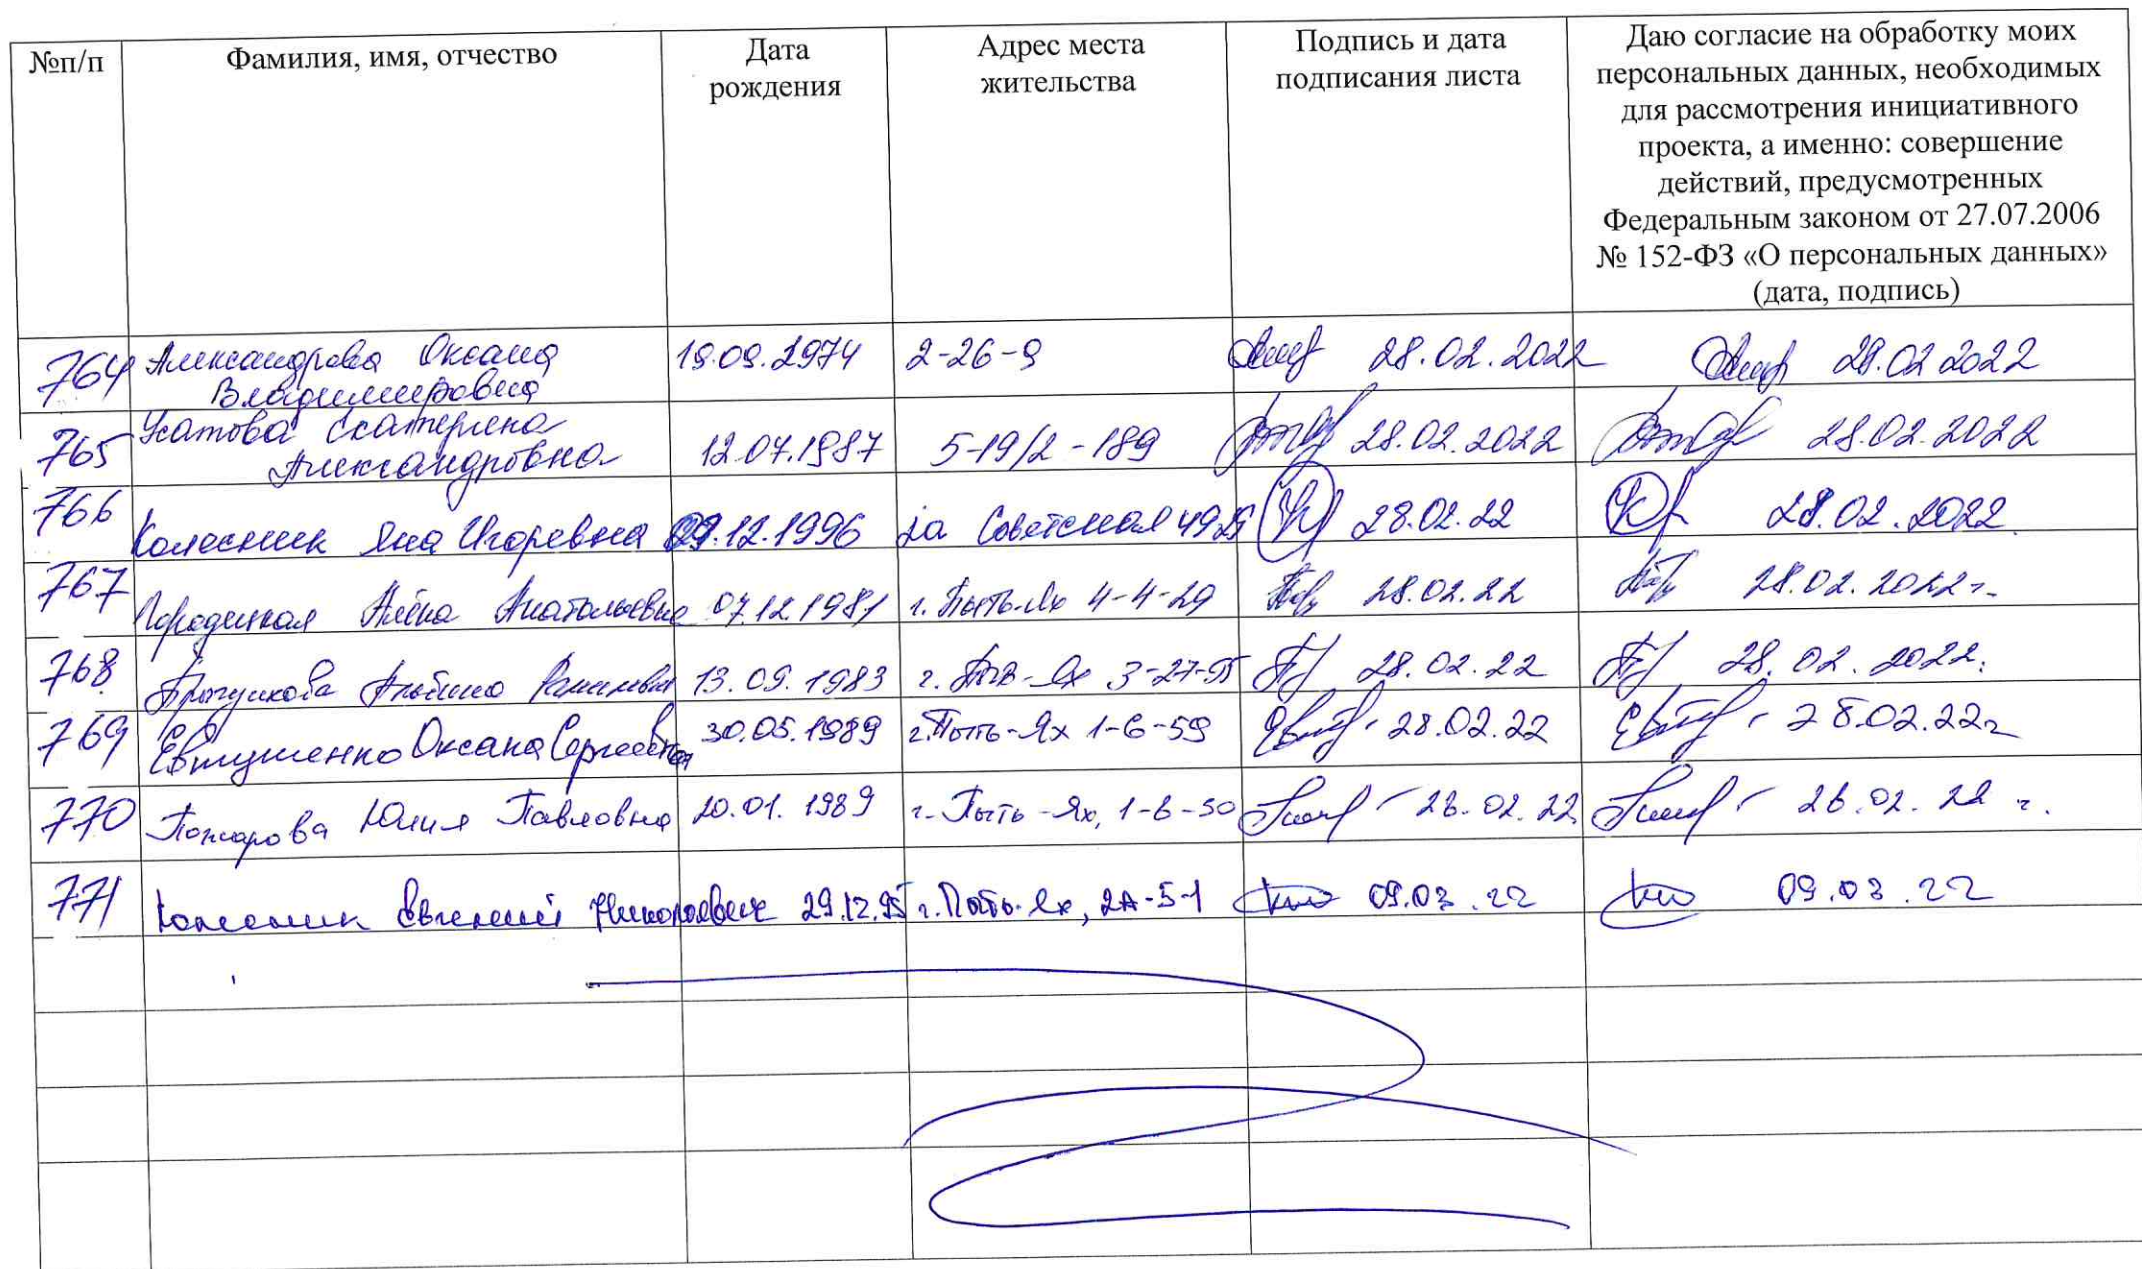 №п/п
Фамилия, имя, отчество
Дата
рождения
Адрес места
жительства
Подпись и дата
подписания листа
Даю согласие на обработку моих
персональных данных, необходимых
для рассмотрения инициативного
проекта, а именно: совершение
действий, предусмотренных
Федеральным законом от 27.07.2006
№ 152-ФЗ «О персональных данных»
(дата, подпись)
764 Александрова Оксана 19.09.1974 2-26-9 28.02.2022 28.02 2022
Владимировна
765 Усатова Екатерина 12.07.1987 5-19/2-189 28.02.2022 28.02.2022
Александровна
766 Колесник Яна Игоревна 09.12.1996 2а Советская 28.02.22 28.02.2022
767 Городецкая Алёна Анатольевна 07.12.1981 г. Пыть-Ях 4-4-29 28.02.22 28.02.2022 г.
768 Альбина 13.09.1983 г. Пыть-Ях 3-27-95 28.02.22 28.02.2022.
769 Евтушенко Оксана Сергеевна 30.05.1989 г. Пыть-Ях 1-6-59 28.02.22 28.02.22г
770 Юлия Павловна 20.01.1989 г. Пыть-Ях, 1-6-50 28.02.22 28.02.22 г.
771 Евгений Николаевич 29.12.95 г. Пыть-Ях, 2А-5-1 09.03.22 09.03.22